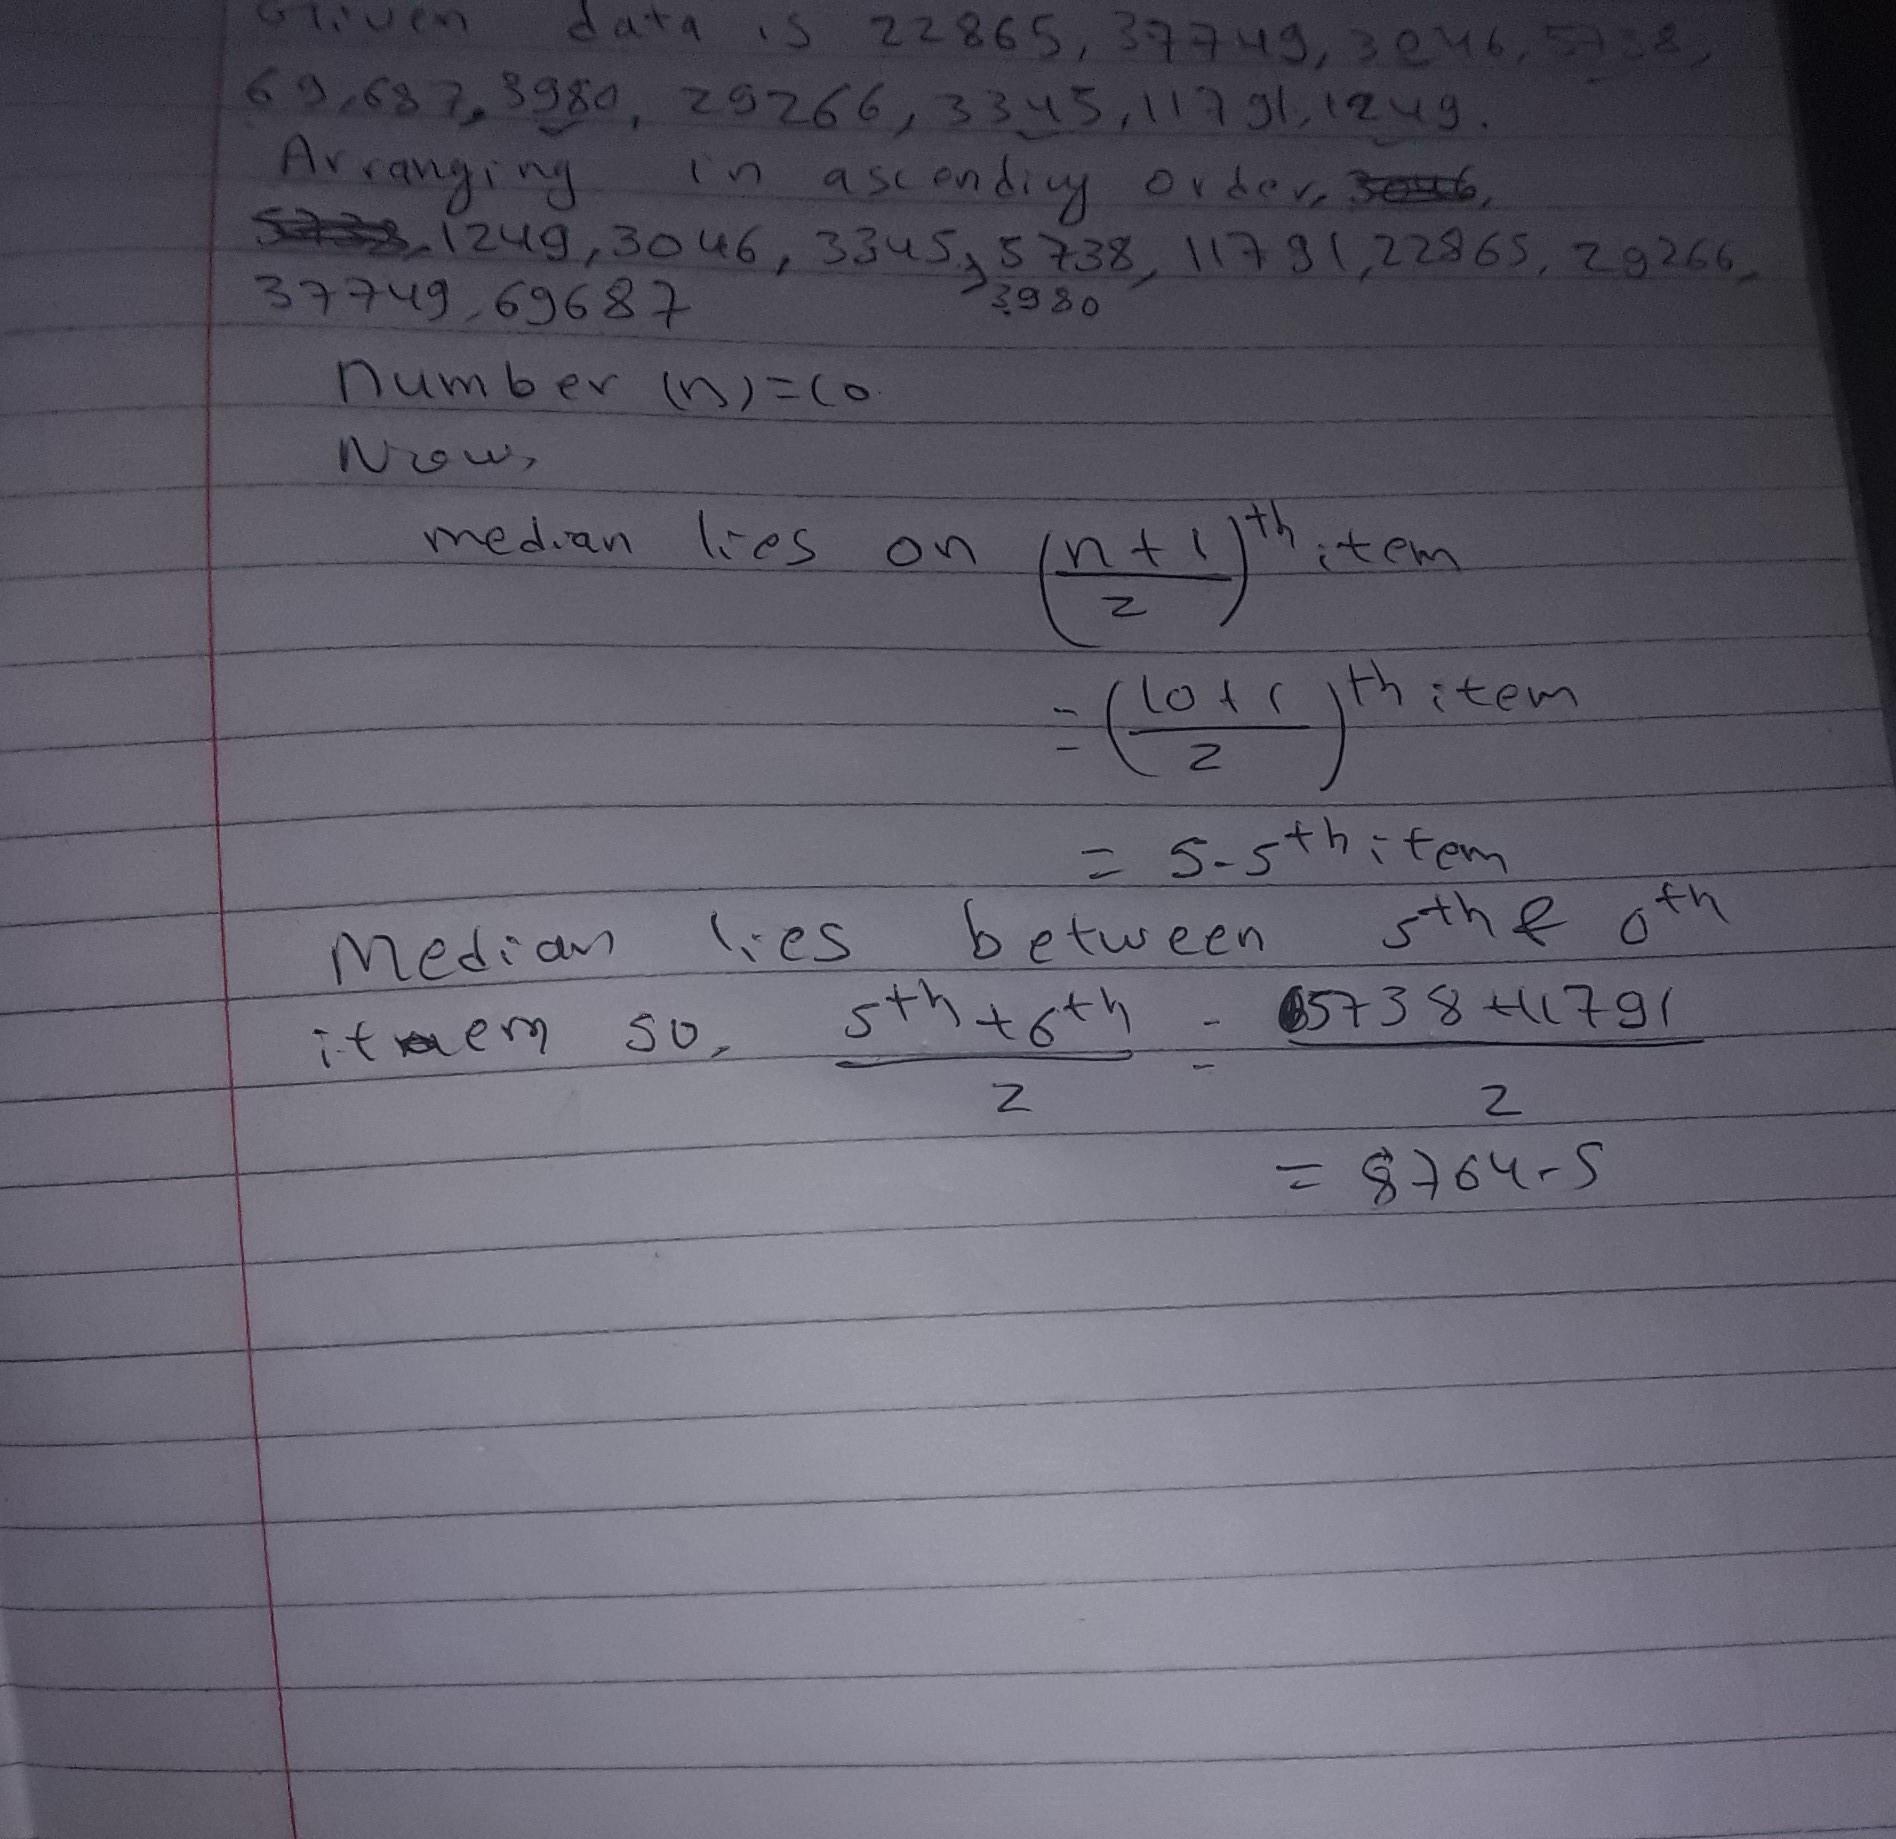 Given data is 22865, 37749, 3046, 5738,
69,687, 3980, 29266, 3345, 11791, 1249.
Arranging in ascending order, 3046,
5738, 1249, 3046, 3345, 5738, 11791, 22865, 29266,
3980
37749, 69687
number (n) = 10.
Now,
median lies on (n+1/2)th item
= (10+1/2)th item
= 5.5th item
Median lies between 5th & 6th
item so, 5th + 6th / 2 = 5738+11791 / 2
= 8764.5